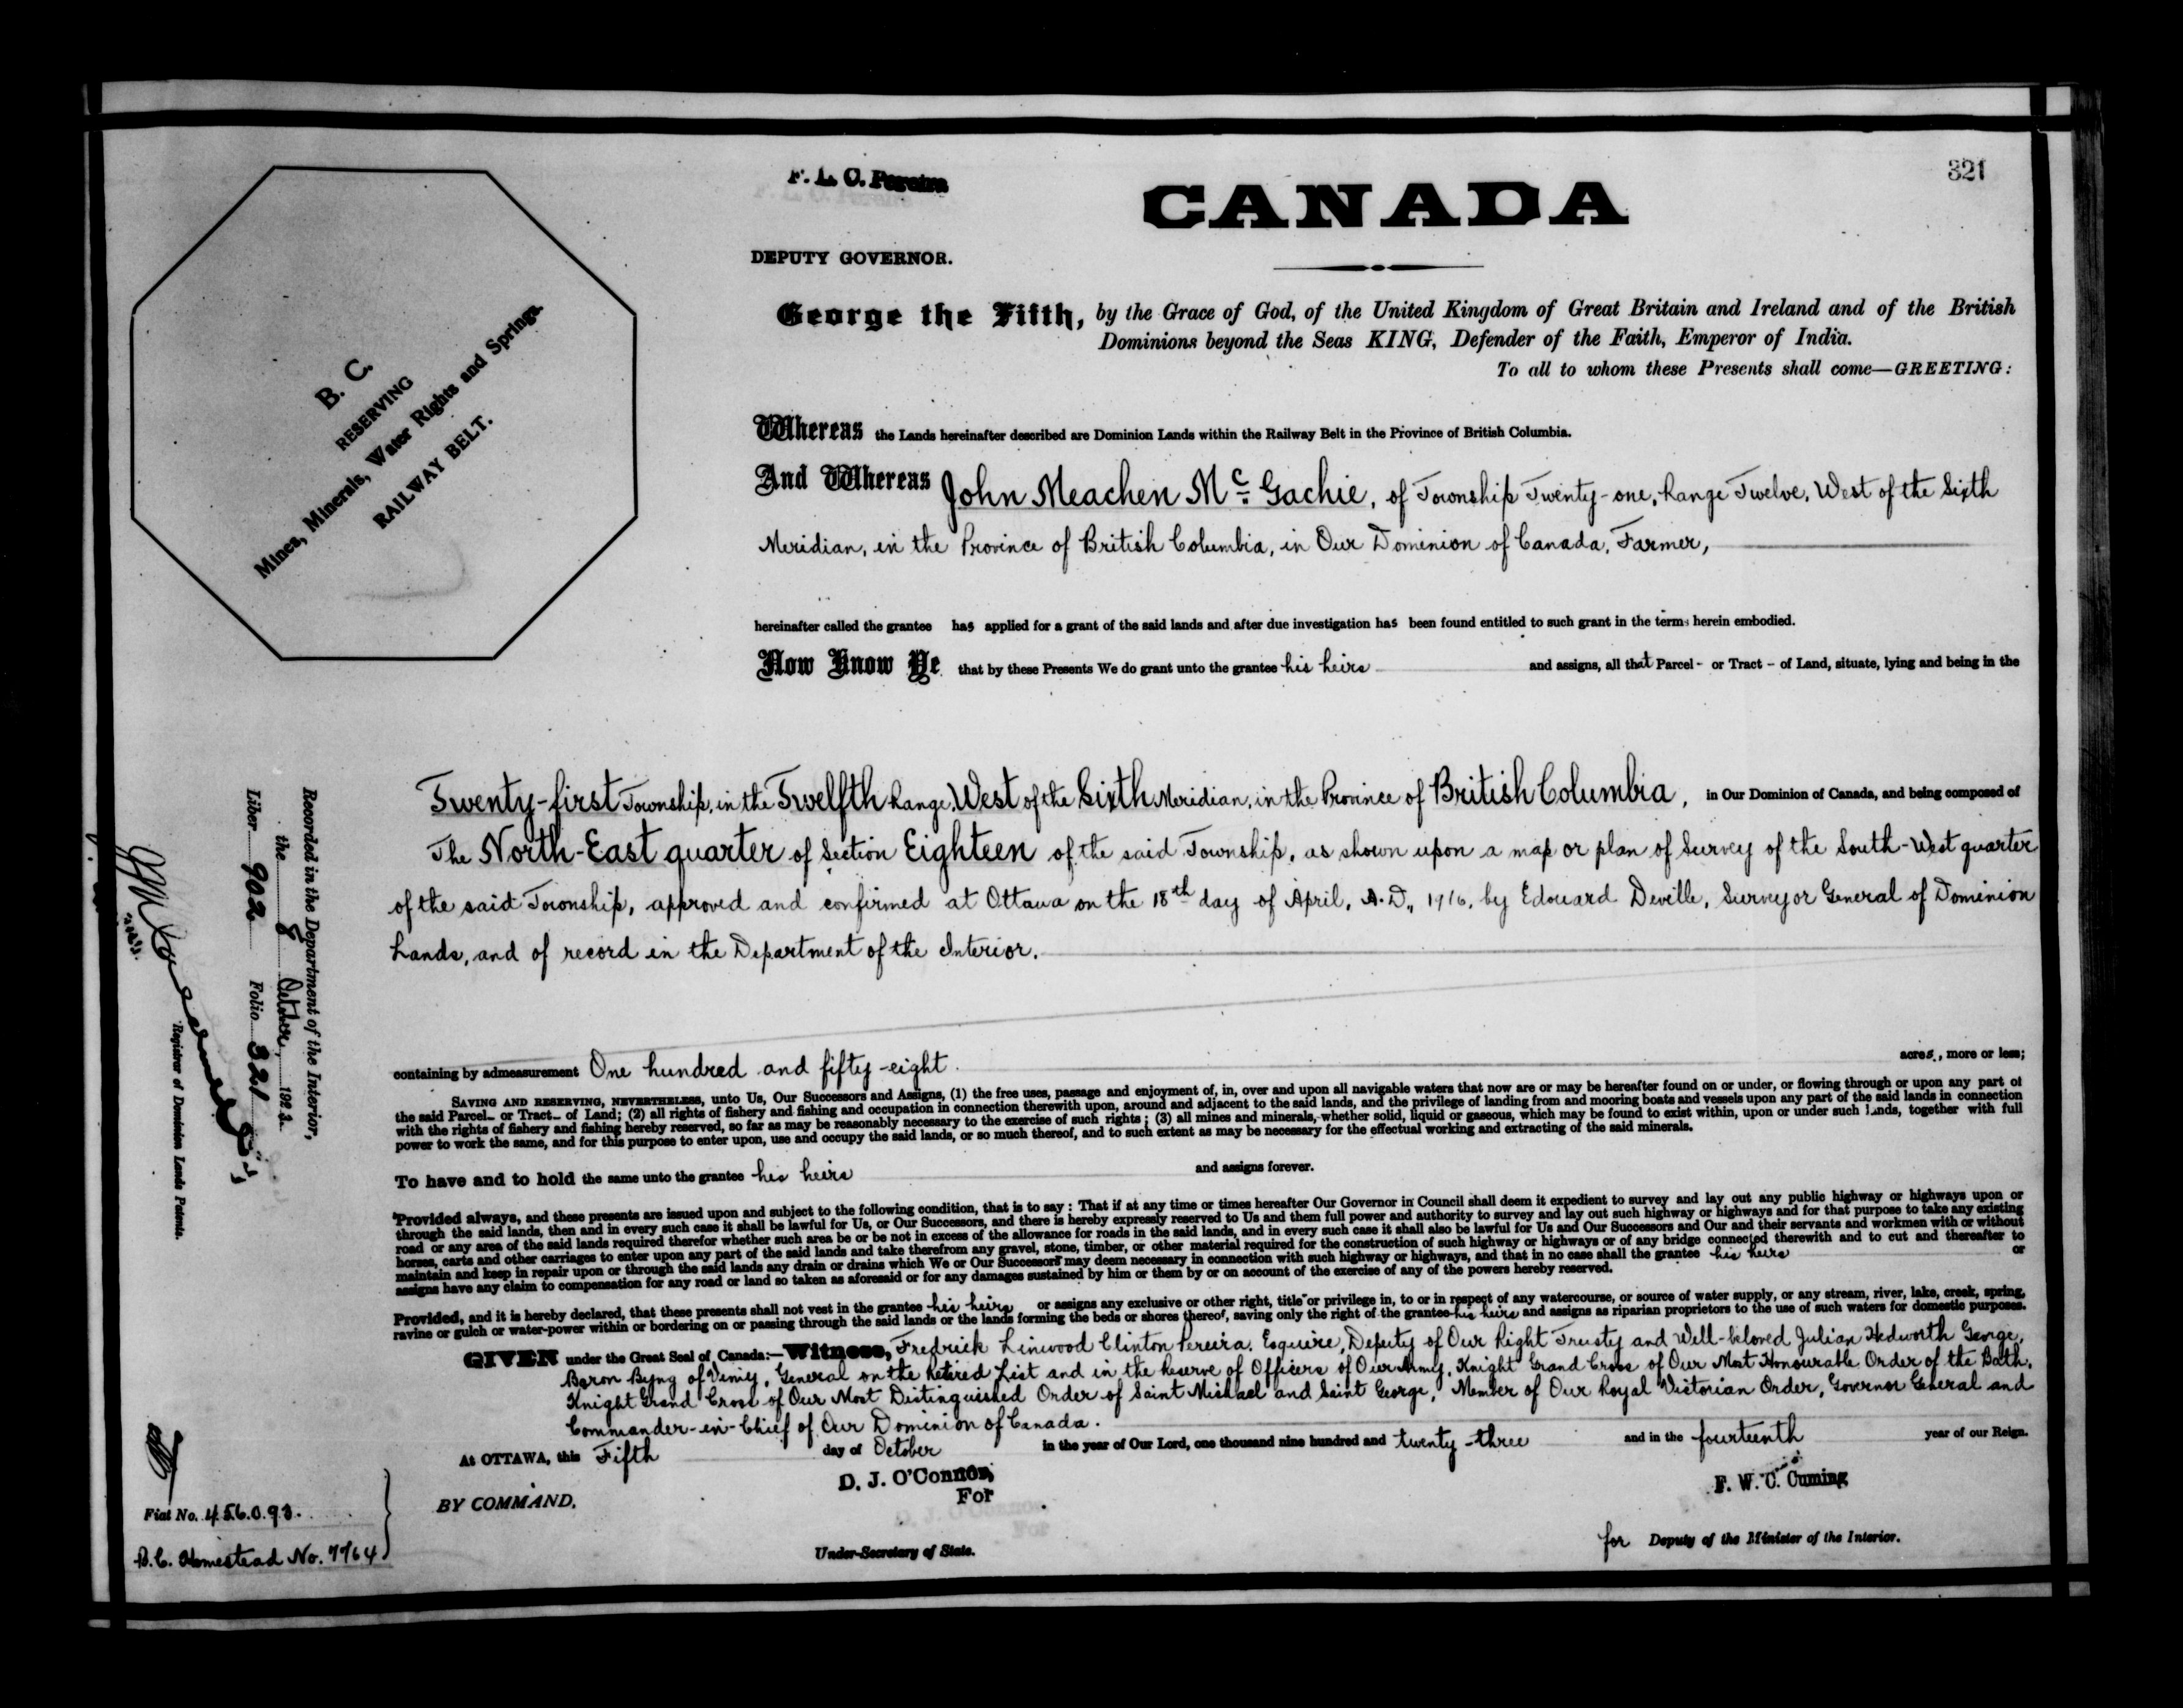 321
F. L. C. Pereira
CANADA
DEPUTY GOVERNOR.
George the Fifth, by the Grace of God, of the United Kingdom of Great Britain and Ireland and of the British
Dominions beyond the Seas KING, Defender of the Faith, Emperor of India.
To all to whom these Presents shall come—GREETING:
B. C.
RESERVING
Mines, Minerals, Water Rights and Springs.
RAILWAY BELT.
Whereas the Lands hereinafter described are Dominion Lands within the Railway Belt in the Province of British Columbia.
And Whereas John Meachen Mc Gachie, of Township Twenty-one, Range Twelve, West of the Sixth
Meridian, in the Province of British Columbia, in Our Dominion of Canada, Farmer,
hereinafter called the grantee has applied for a grant of the said lands and after due investigation has been found entitled to such grant in the terms herein embodied.
Now Know Ye that by these Presents We do grant unto the grantee his heirs and assigns, all that Parcel - or Tract - of Land, situate, lying and being in the
Twenty-first Township, in the Twelfth Range, West of the Sixth Meridian, in the Province of British Columbia, in Our Dominion of Canada, and being composed of
The North-East quarter of Section Eighteen of the said Township, as shown upon a map or plan of Survey of the South-West quarter
of the said Township, approved and confirmed at Ottawa on the 18th day of April, A.D., 1916, by Edouard Deville, Surveyor General of Dominion
Lands, and of record in the Department of the Interior.
containing by admeasurement One hundred and fifty-eight acres, more or less;
SAVING AND RESERVING, NEVERTHELESS, unto Us, Our Successors and Assigns, (1) the free uses, passage and enjoyment of, in, over and upon all navigable waters that now are or may be hereafter found on or under, or flowing through or upon any part of
the said Parcel- or Tract- of Land; (2) all rights of fishery and fishing and occupation in connection therewith upon, around and adjacent to the said lands, and the privilege of landing from and mooring boats and vessels upon any part of the said lands in connection
with the rights of fishery and fishing hereby reserved, so far as may be reasonably necessary to the exercise of such rights; (3) all mines and minerals, whether solid, liquid or gaseous, which may be found to exist within, upon or under such lands, together with full
power to work the same, and for this purpose to enter upon, use and occupy the said lands, or so much thereof, and to such extent as may be necessary for the effectual working and extracting of the said minerals.
To have and to hold the same unto the grantee his heirs and assigns forever.
Provided always, and these presents are issued upon and subject to the following condition, that is to say: That if at any time or times hereafter Our Governor in Council shall deem it expedient to survey and lay out any public highway or highways upon or
through the said lands, then and in every such case it shall be lawful for Us, or Our Successors, and there is hereby expressly reserved to Us and them full power and authority to survey and lay out such highway or highways and for that purpose to take any existing
road or any area of the said lands required therefor whether such area be or be not in excess of the allowance for roads in the said lands, and in every such case it shall also be lawful for Us and Our Successors and Our and their servants and workmen with or without
horses, carts and other carriages to enter upon any part of the said lands and take therefrom any gravel, stone, timber, or other material required for the construction of such highway or highways or of any bridge connected therewith and to cut and thereafter to
maintain and keep in repair upon or through the said lands any drain or drains which We or Our Successors may deem necessary in connection with such highway or highways, and that in no case shall the grantee his heirs or
assigns have any claim to compensation for any road or land so taken as aforesaid or for any damages sustained by him or them by or on account of the exercise of any of the powers hereby reserved.
Provided, and it is hereby declared, that these presents shall not vest in the grantee his heirs or assigns any exclusive or other right, title or privilege in, to or in respect of any watercourse, or source of water supply, or any stream, river, lake, creek, spring,
ravine or gulch or water-power within or bordering on or passing through the said lands or the lands forming the beds or shores thereof, saving only the right of the grantee his heirs and assigns as riparian proprietors to the use of such waters for domestic purposes.
GIVEN under the Great Seal of Canada:—Witness, Fredrick Linwood Clinton Pereira, Esquire, Deputy of Our Right Trusty and Well-beloved Julian Hedworth George,
Baron Byng of Vimy, General on the Retired List and in the Reserve of Officers of Our Army, Knight Grand Cross of Our Most Honourable Order of the Bath,
Knight Grand Cross of Our Most Distinguished Order of Saint Michael and Saint George, Member of Our Royal Victorian Order, Governor General and
Commander-in-Chief of Our Dominion of Canada.
At OTTAWA, this Fifth day of October in the year of Our Lord, one thousand nine hundred and twenty-three and in the fourteenth year of our Reign.
BY COMMAND,
D. J. O'Connor,
For
Under-Secretary of State.
F. W. C. Cuming
for Deputy of the Minister of the Interior.
Recorded in the Department of the Interior,
the 8 October, 1923.
Liber 902 Folio 321
Registrar of Dominion Lands Patents.
Fiat No. 456093.
B.C. Homestead No. 7764